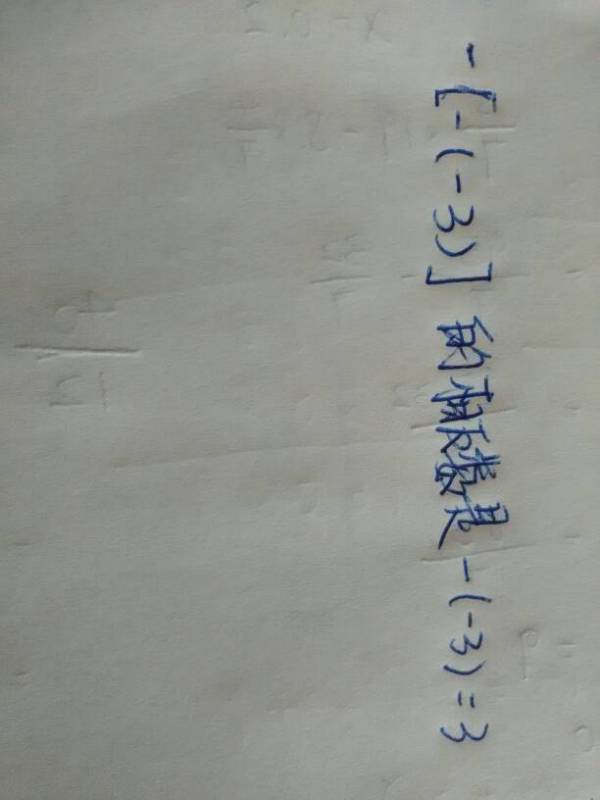 -[-(-3)]的相反数是-(-3)=3